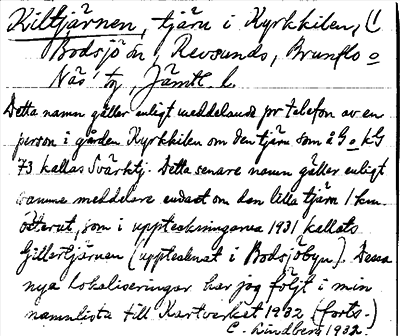 Kiltjärnen, tjärn i Kyrkkilen, (!
Bodsjö sn, Revsunds, Brunflo o
Näs tg, Jämtl. l.
Detta namn gäller enligt meddelande pr telefon av en
person i gården Kyrkkilen om den tjärn som å G o k G
73 kallas Svärttj. Detta senare namn gäller enligt
samme meddelare endast om den lilla tjärn 1 km
österut, som i uppteckningarna 1931 kallats
Gillertjärnen (upptecknat i Bodsjöbyn). Dessa
nya lokaliseringar har jag följt i min
namnlista till Kartverket 1932 (forts.)
C. Lindberg 1932.